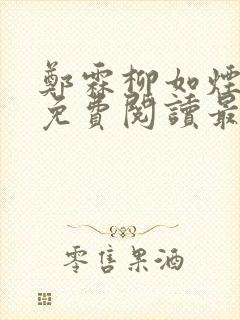 鄭霖柳如煙
免費閱讀最
零售果酒